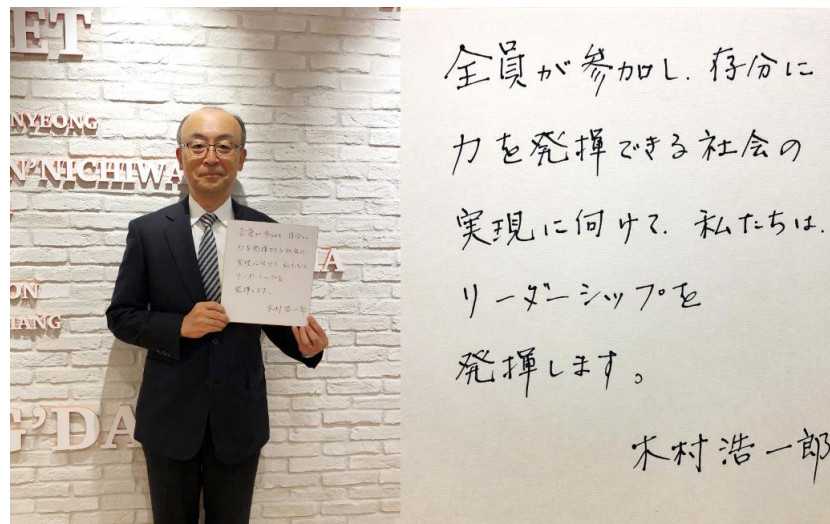 ET
NYEONG
N'NICHIWA
A
ON
HANG
G'DA
全員が参加し、存分に
力を発揮できる社会の
実現に向けて、私たちは、
リーダーシップを
発揮します。
木村浩一郎
全員が参加し、存分に
力を発揮できる社会の
実現に向けて、私たちは、
リーダーシップを
発揮します。
木村浩一郎